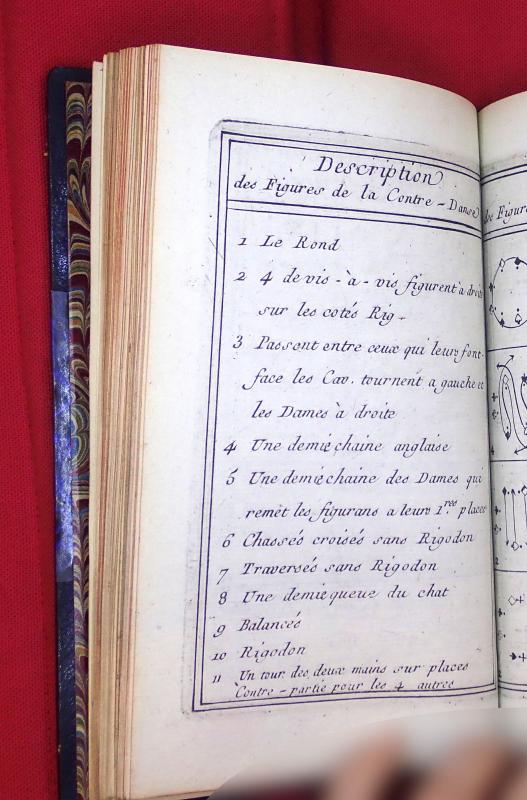 Description
des Figures de la Contre - Danse
1 Le Rond
2 4 de vis - à - vis figurent à droite
sur les cotés Rig.
3 Passent entre ceux qui leurs font
face les Cav. tournent a gauche et
les Dames à droite
4 Une demie chaine anglaise
5 Une demie chaine des Dames qui
remet les figurans a leurs 1.res places
6 Chassés croisés sans Rigodon
7 Traversés sans Rigodon
8 Une demie queue du chat
9 Balancés
10 Rigodon
11 Un tour des deux mains sur places
Contre - partie pour les 4 autres